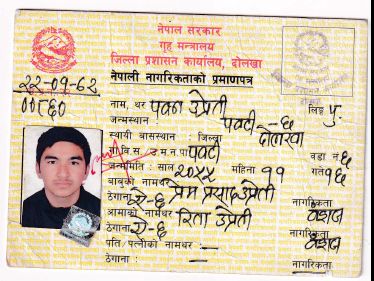 नेपाल सरकार
गृह मन्त्रालय
जिल्ला प्रशासन कार्यालय, दोलखा
नेपाली नागरिकताको प्रमाणपत्र
२२-०१-६२
००८६०
नाम, थर पवन उप्रेती लिङ्ग पु.
जन्मस्थान: पवटी - ६ दोलखा
स्थायी बासस्थान: जिल्ला
गा.वि.स उ.म.न.पा पवटी वडा नं ६
जन्ममिति: साल २०४४ महिना ११ गते १६
बाबुको नामथर: प्रेम प्रसाद उप्रेती नागरिकता
ठेगाना ऐ-६ वंशज
आमाको नामथर रिता उप्रेती नागरिकता
ठेगाना ऐ-६ वंशज
पति/पत्नीको नामथर: —
ठेगाना: — नागरिकता